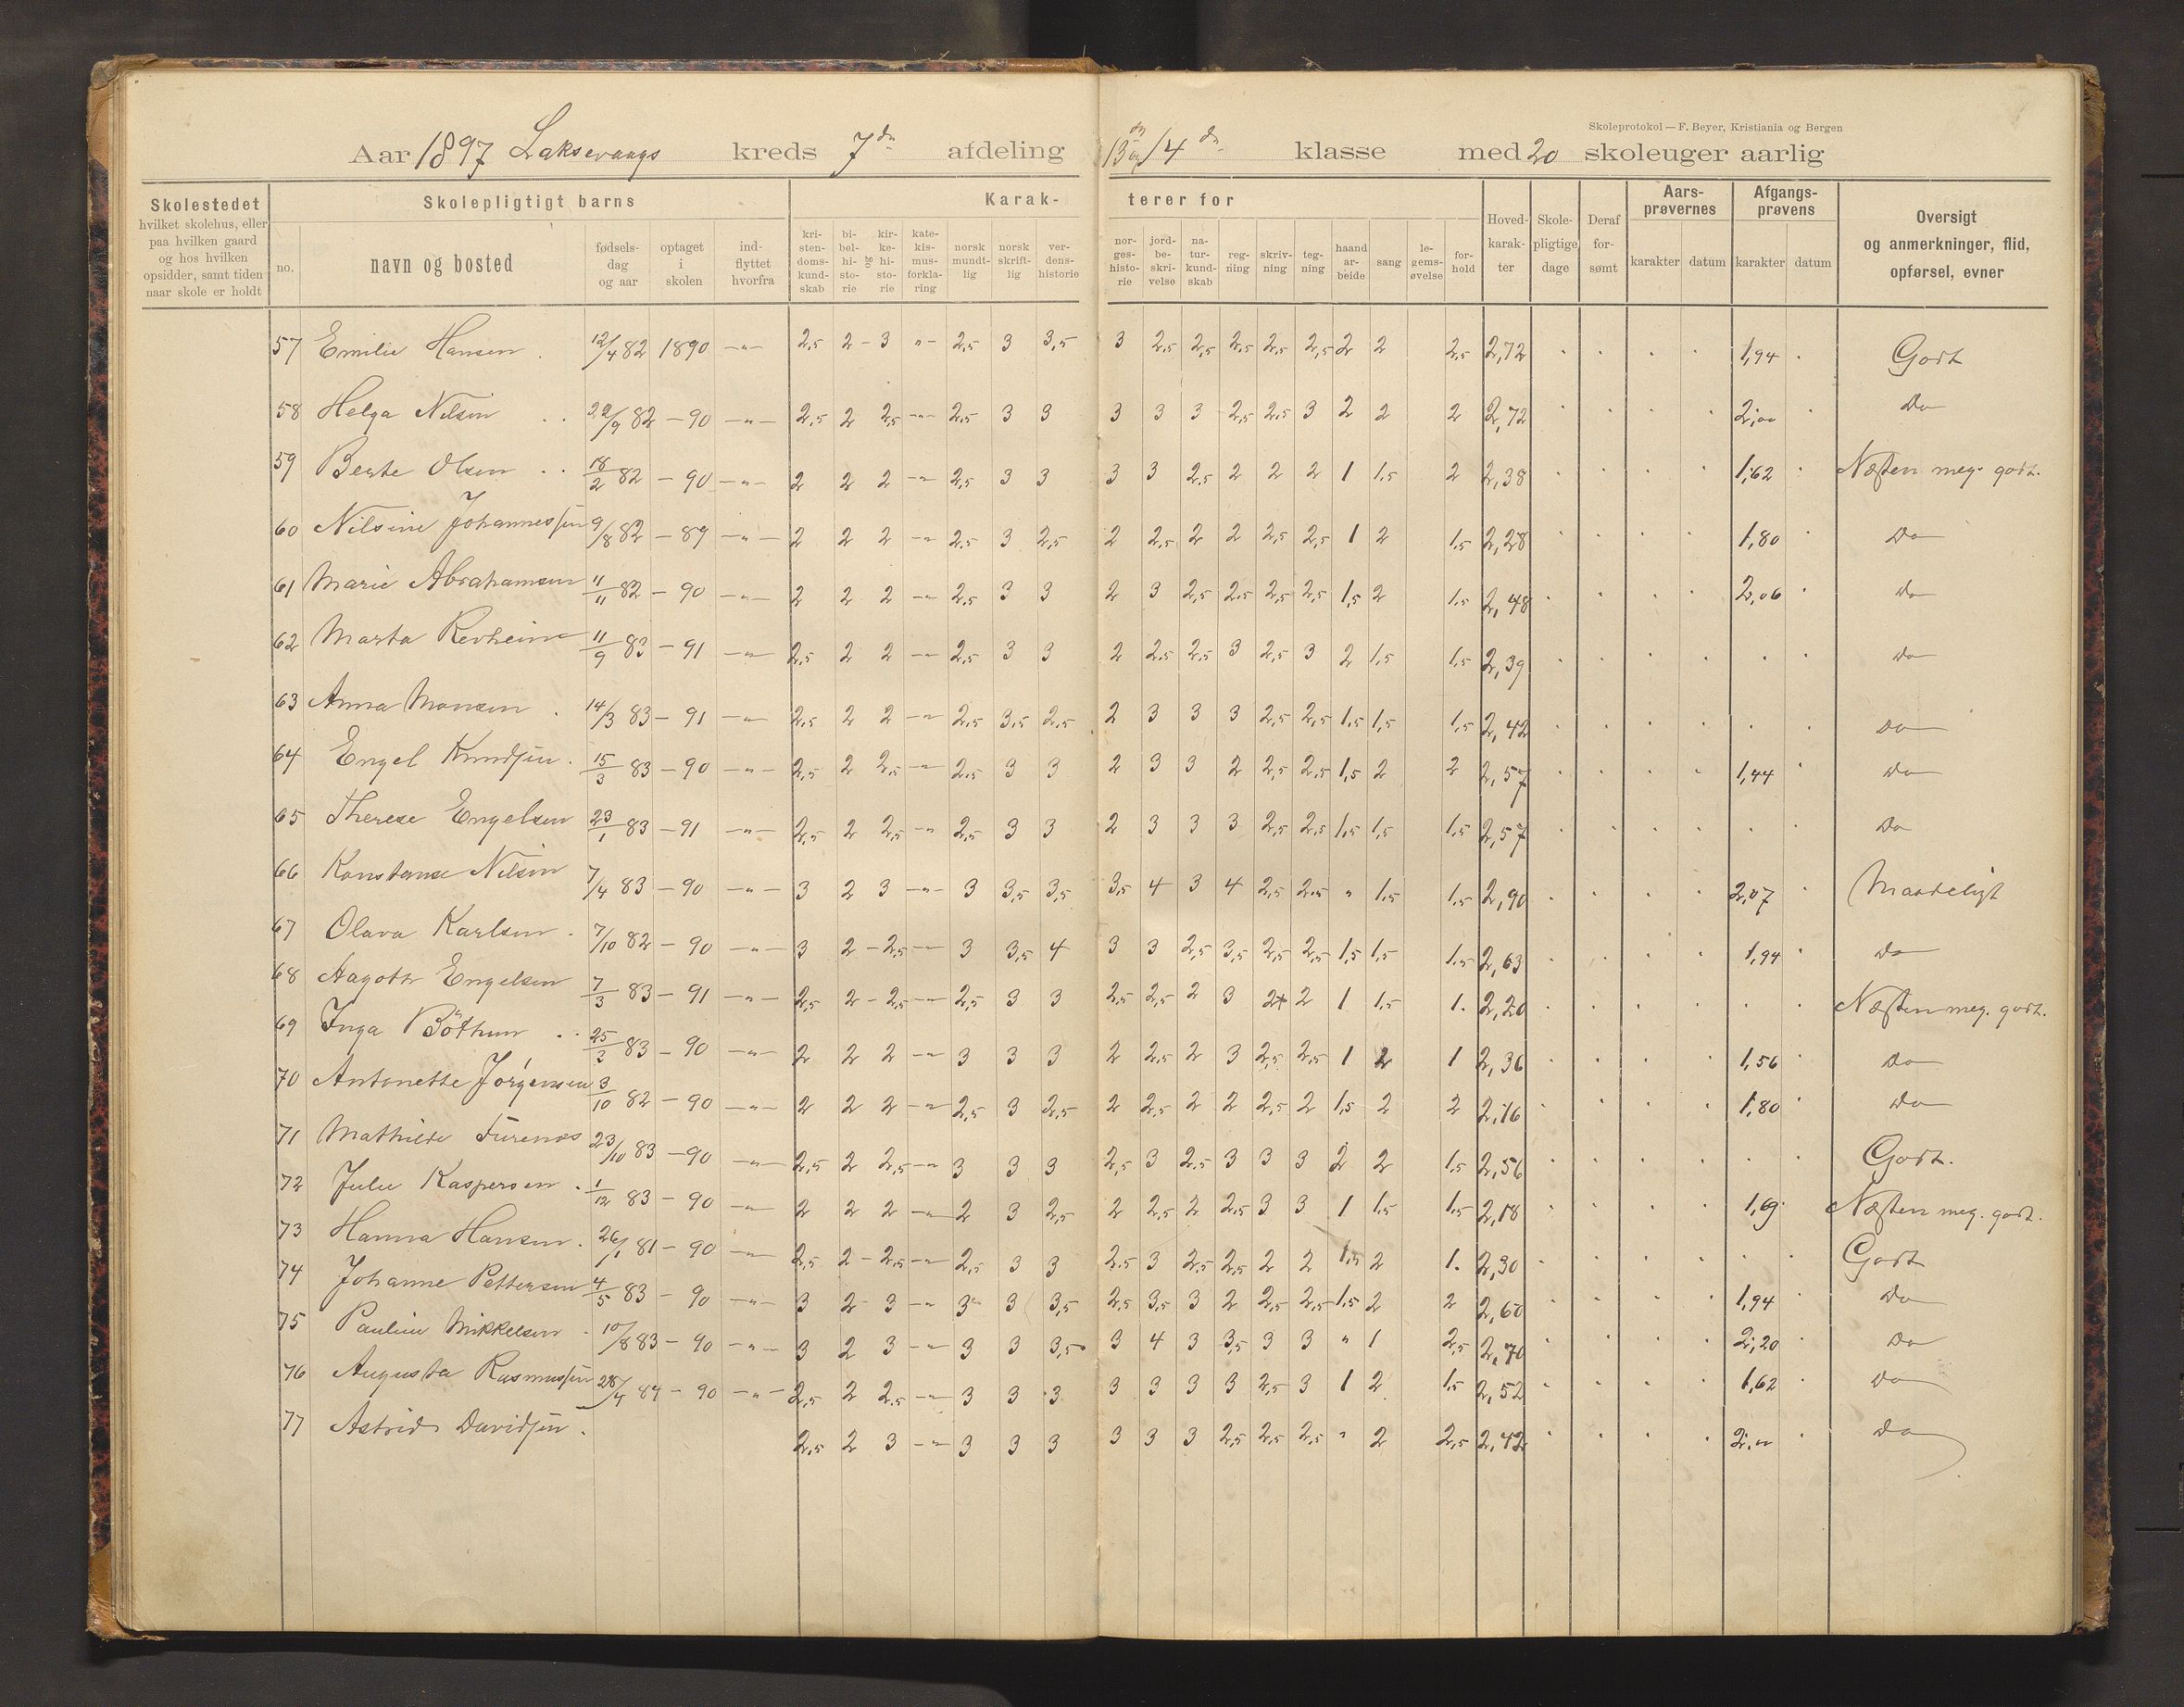 Skoleprotokol — F. Beyer, Kristiania og Bergen
Aar 1897 Laksevaags kreds 7de afdeling 13 og 14de klasse med 20 skoleuger aarlig
Skolestedet hvilket skolehus, eller paa hvilken gaard og hos hvilken opsidder, samt tiden naar skole er holdt
Skolepligtigt barns
no. navn og bosted fødsels-dag og aar optaget i skolen ind-flyttet hvorfra
Karak-terer for
kri-sten-doms-kund-skab bi-bel-hi-sto-rie og kir-ke-hi-sto-rie kate-kis-mus-forkla-ring norsk mundt-lig norsk skrift-lig ver-dens-historie
nor-ges-histo-rie jord-be-skri-velse na-tur-kund-skab reg-ning skriv-ning teg-ning haand ar-beide sang le-gems-øvelse for-hold
Hoved-karak-ter Skole-pligtige dage Deraf for-sømt Aars-prøvernes karakter datum Afgangs-prøvens karakter datum
Oversigt og anmerkninger, flid, opførsel, evner
57 Emilie Hansen 12/4 82 1890 -"- 2,5 2 - 3 "- 2,5 3 3,5 3 2,5 2,5 2,5 2,5 2,5 2 2 2,5 2,72 1,94 Godt
58 Helga Nilsen 22/9 82 - 90 -"- 2,5 2 2,5 -"- 2,5 3 3 3 3 3 2,5 2,5 3 2 2 2 2,72 2,00 Do
59 Berte Olsen 18/2 82 - 90 -"- 2 2 2 -"- 2,5 3 3 3 3 2,5 2 2 2 1 1,5 2 2,38 1,62 Næsten meg. godt.
60 Nilsine Johannessen 9/8 82 - 89 -"- 2 2 2 -"- 2,5 3 2,5 2 2,5 2 2 2,5 2,5 1 2 1,5 2,28 1,80 Do
61 Marie Abrahamsen 11/11 82 - 90 -"- 2 2 2 -"- 2,5 3 3 2 3 2,5 2,5 2,5 2,5 1,5 2 1,5 2,48 2,06 Do
62 Marta Revheim 11/9 83 - 91 -"- 2,5 2 2 -"- 2,5 3 3 2 2,5 2,5 3 2,5 3 2 1,5 1,5 2,39 Do
63 Anna Monsen 14/3 83 - 91 -"- 2,5 2 2 -"- 2,5 3,5 2,5 2 3 3 3 2,5 2,5 1,5 1,5 1,5 2,42 Do
64 Engel Knudsen 15/3 83 - 90 -"- 2,5 2 2,5 -"- 2,5 3 3 2 3 3 2 2,5 2,5 1,5 2 2 2,57 1,44 Do
65 Therese Engelsen 23/1 83 - 91 -"- 2,5 2 2,5 -"- 2,5 3 3 2 3 3 3 2,5 2,5 1,5 1,5 1,5 2,57 Do
66 Konstanse Nilsen 7/4 83 - 90 -"- 3 2 3 -"- 3 3,5 3,5 3,5 4 3 4 2,5 2,5 " 1,5 1,5 2,90 2,07 Maadeligt
67 Olava Karlsen 7/10 82 - 90 -"- 3 2 - 2,5 -"- 3 3,5 4 3 3 2,5 3,5 2,5 2,5 1,5 1,5 1,5 2,63 1,94 Do
68 Aagothe Engelsen 7/3 83 - 91 -"- 2,5 2 - 2,5 -"- 2,5 3 3 2,5 2,5 2 3 2 2 1 1,5 1. 2,20 Næsten meg. godt.
69 Inga Böthun 25/3 83 - 90 -"- 2 2 2 -"- 3 3 3 2 2,5 2 3 2,5 2,5 1 2 1 2,36 1,56 Do
70 Antonette Jørgensen 3/10 82 - 90 -"- 2 2 2 -"- 2,5 3 2,5 2 2,5 2 2 2,5 2 1,5 2 2 2,16 1,80 Do
71 Mathilde Furenæs 23/10 83 - 90 -"- 2,5 2 2,5 -"- 3 3 3 2,5 3 2,5 3 3 3 2 2 1,5 2,56 Godt.
72 Julie Kaspersen 1/12 83 - 90 -"- 2 2 2 -"- 2 3 2,5 2 2,5 2 2,5 3 3 1 1,5 1,5 2,18 1,69 Næsten meg. godt.
73 Hanna Hansen 26/1 81 - 90 -"- 2,5 2 - 2,5 -"- 2,5 3 3 2,5 3 2,5 2,5 2 2 1,5 2 1. 2,30 Godt
74 Johanne Pettersen 4/5 83 - 90 -"- 3 2 3 -"- 3 3 3,5 2,5 3,5 3 2 2,5 2,5 1,5 2 2 2,60 1,94 Do
75 Pauline Mikkelsen 10/8 83 - 90 -"- 3 2 3 -"- 3 3 3,5 3 4 3 3,5 3 3 " 1 2,5 2,70 2,20 Do
76 Augusta Rasmussen 28/4 84 - 90 -"- 2,5 2 2,5 -"- 3 3 3 3 3 3 3 2,5 3 1 2 1,5 2,52 1,62 Do
77 Astrid Davidsen 2,5 2 3 -"- 3 3 3 3 3 3 2,5 2,5 2,5 " 2 2,5 2,42 2," Do